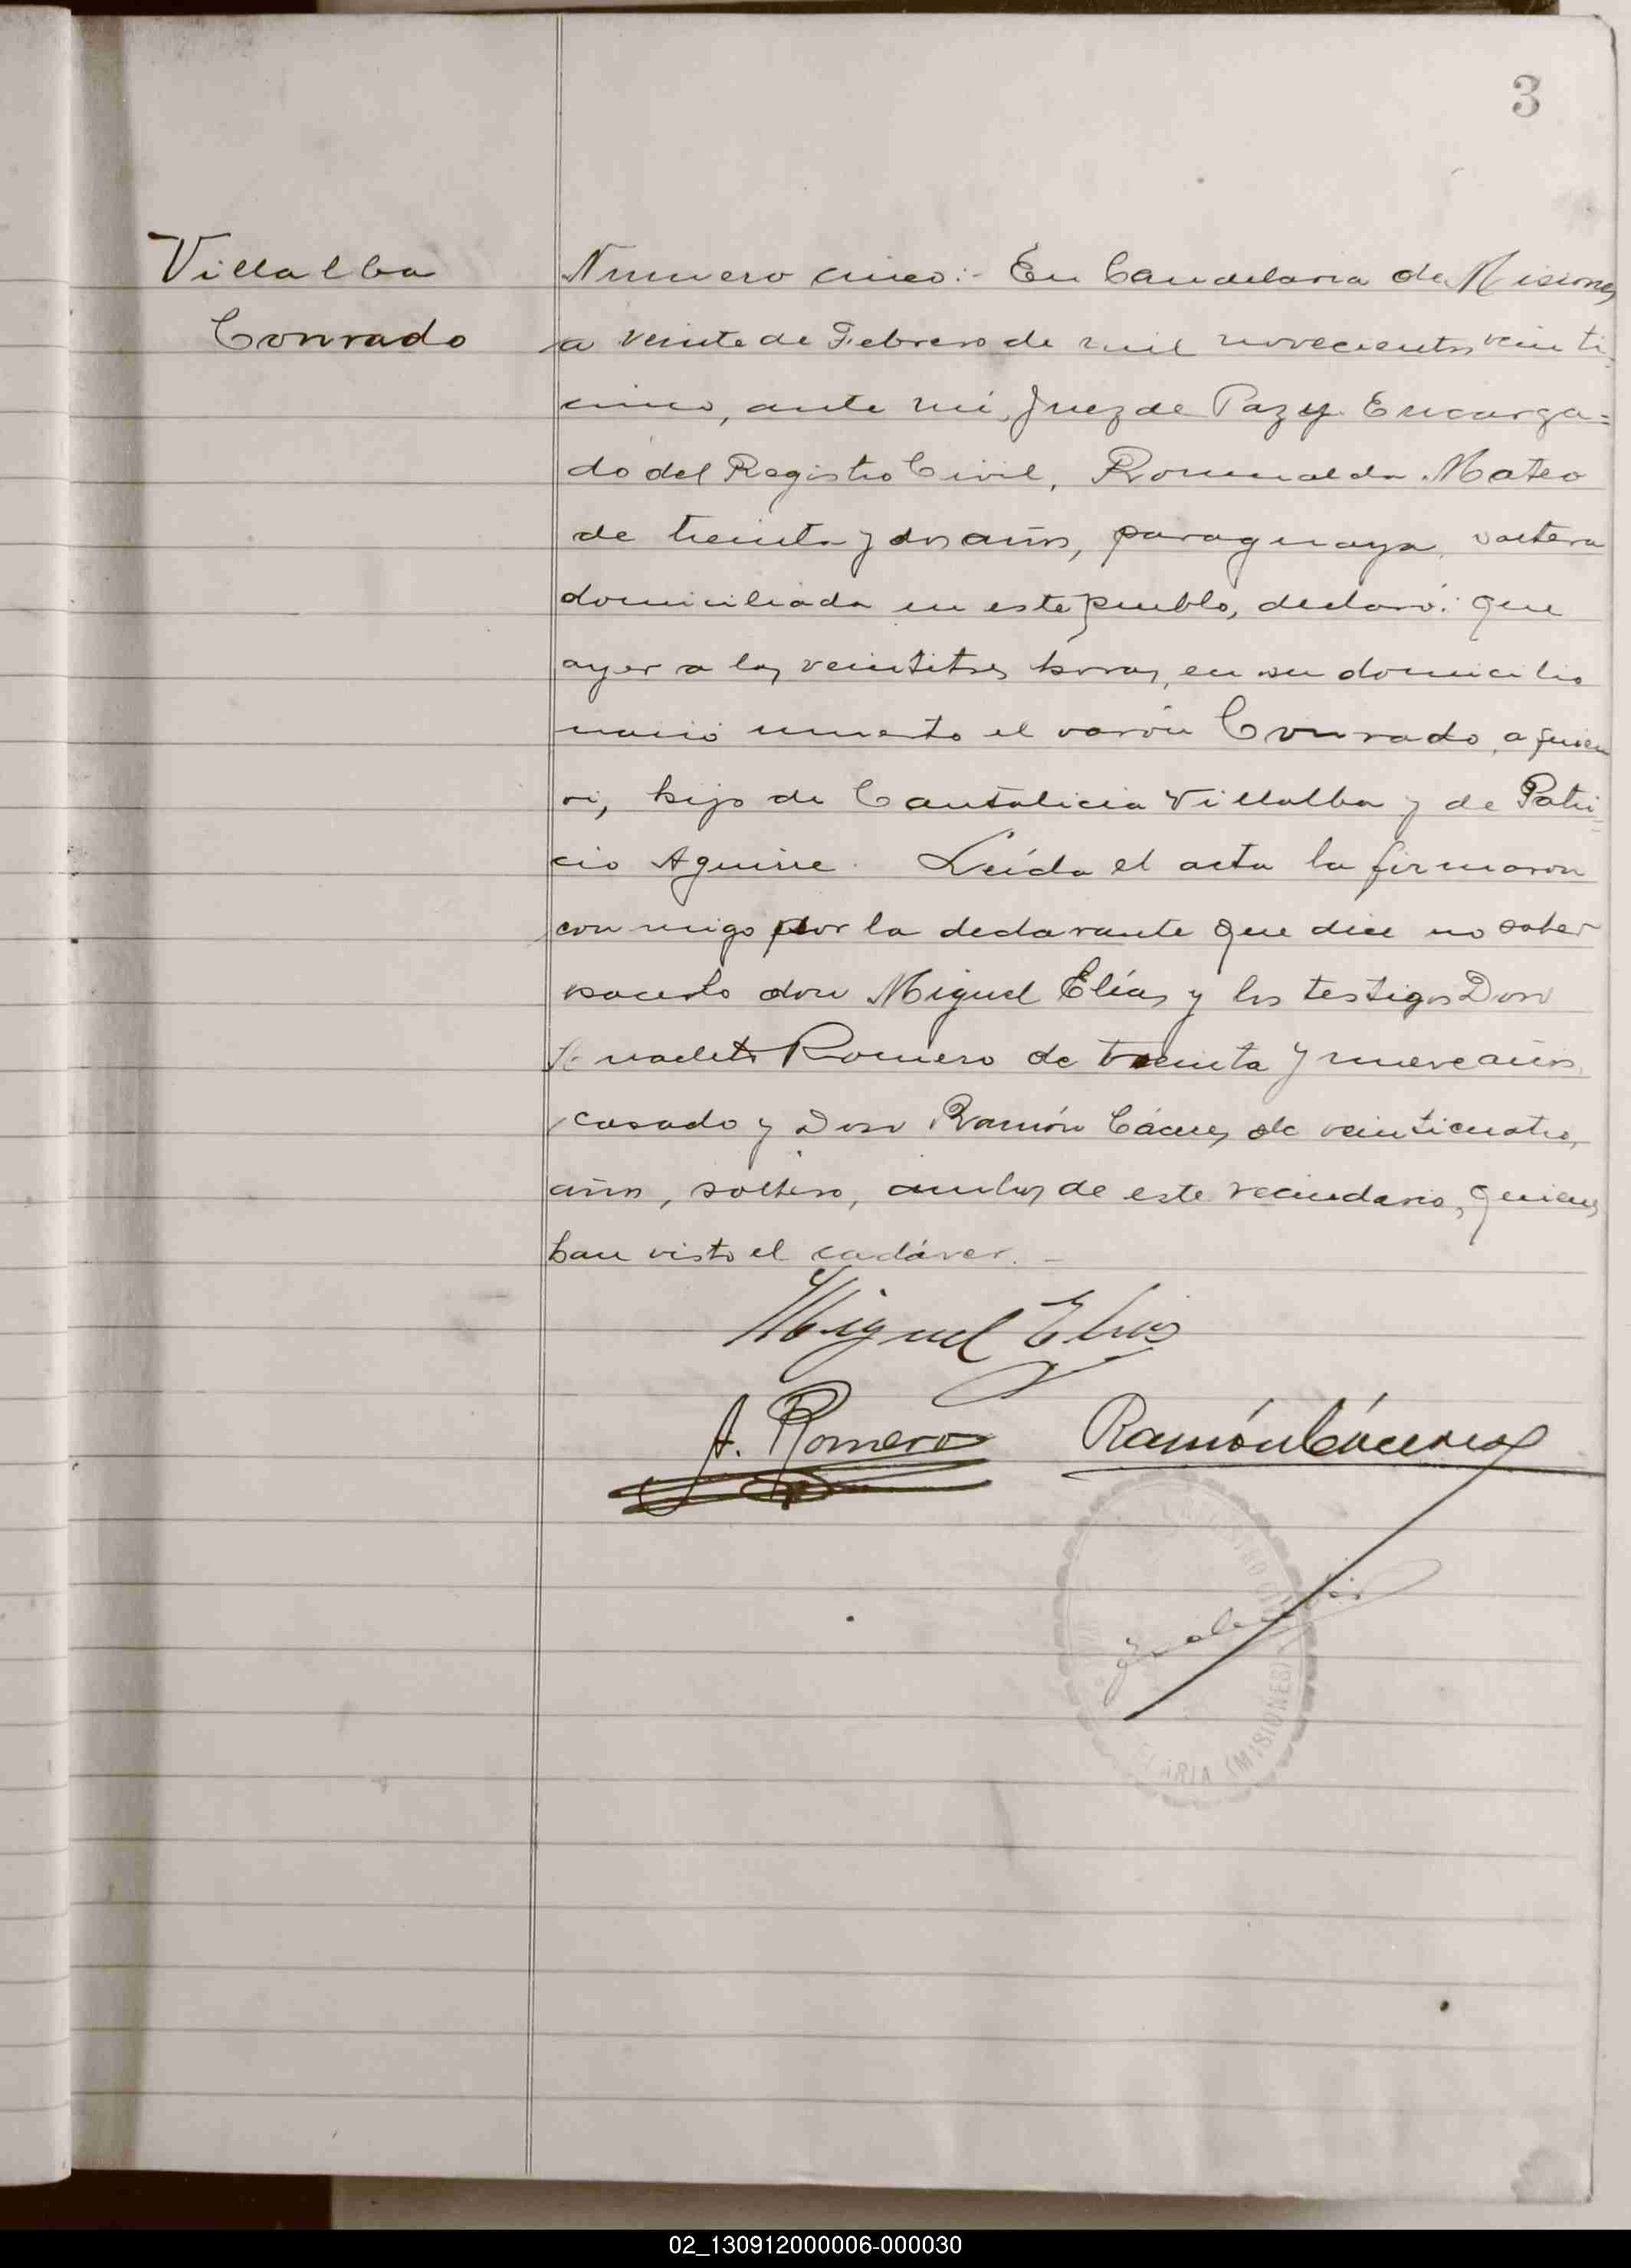 3
Villalba
Conrado
Numero cinco:- En Candelaria de Misiones
a veinte de Febrero de mil novecientos veinti-
cinco, ante mi, Juez de Paz y Encarga=
do del Registro Civil, Romualda Mateo
de treinta y dos años, paraguaya, soltera
domiciliada en este pueblo, declaró: que
ayer a las veintitres horas, en su domicilio
nació muerto el varón Conrado, a quien
vi, hijo de Cantalicia Villalba y de Patri=
cio Aguirre. Leída el acta la firmaron
con migo por la declarante que dice no saber
hacerlo don Miguel Elías y los testigos Don
Romero de treinta y nueve años,
casado y Don Ramón Cáceres de veinticuatro,
años, soltero, ambos de este vecindario, quienes
han visto el cadáver. -
Miguel Elias
A. Romero Ramón Cáceres
(MISIONES)
02_130912000006-000030